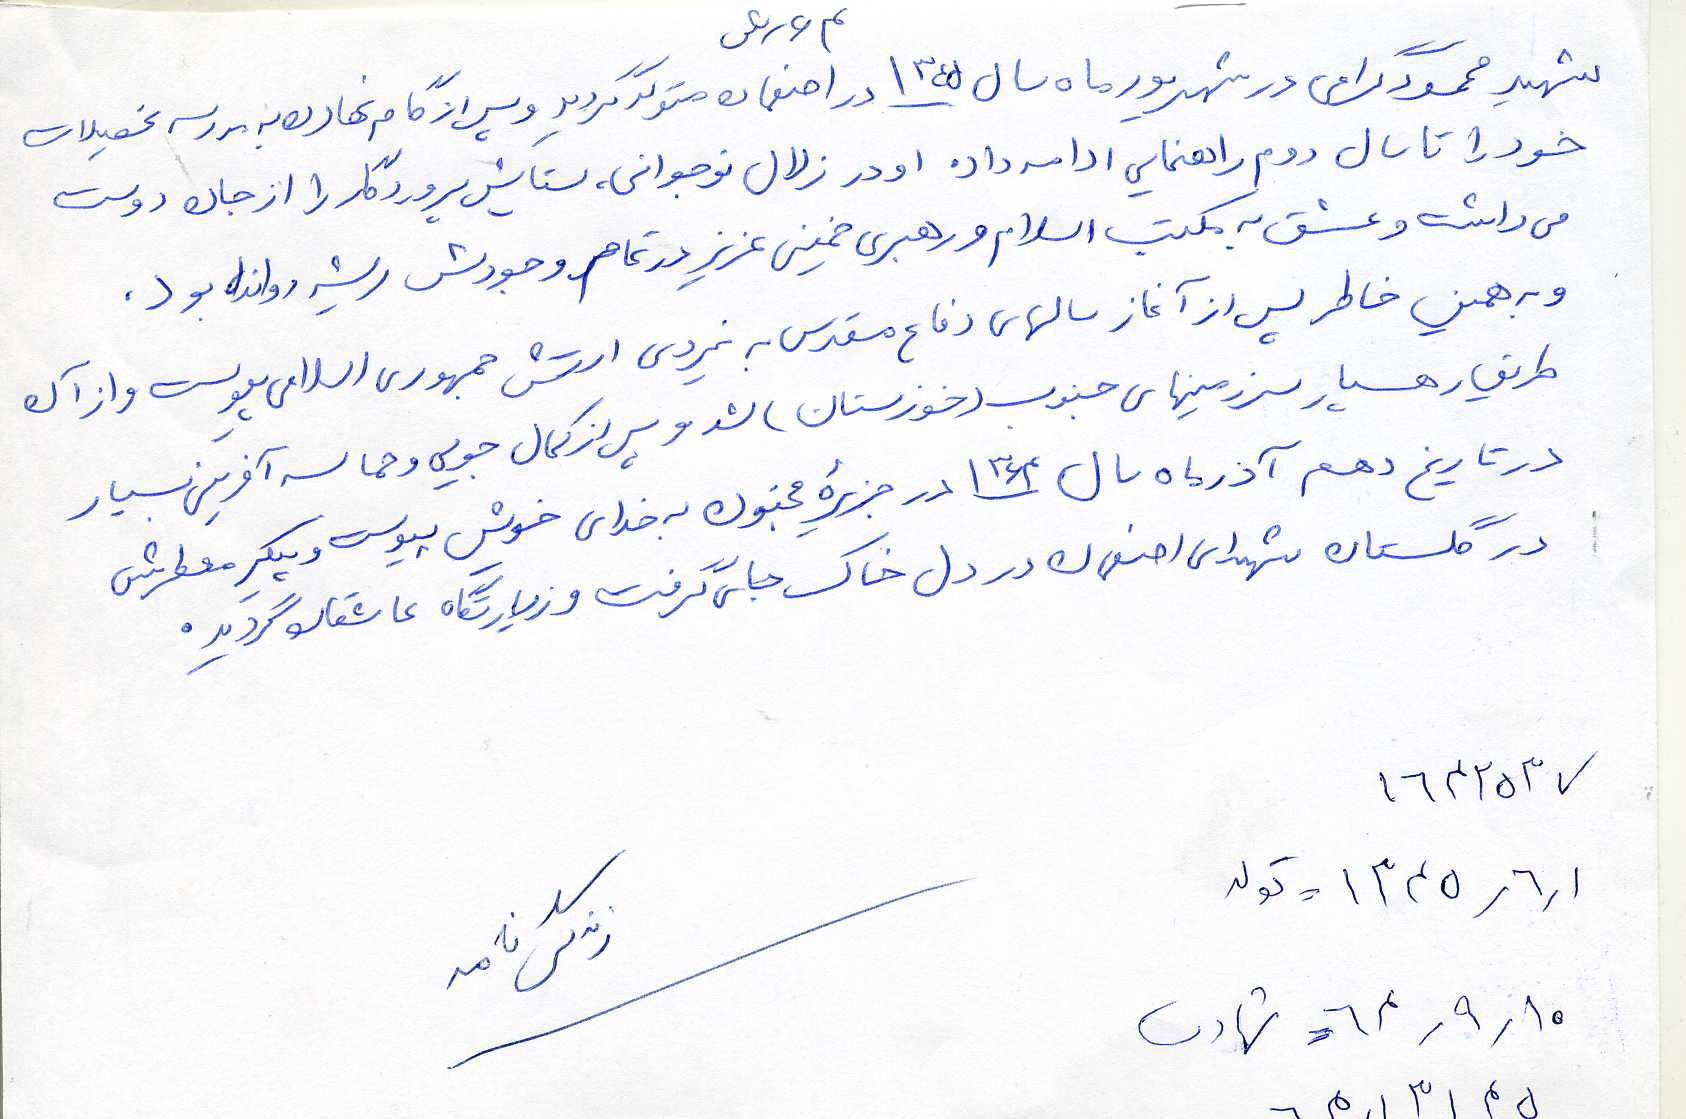 شهید محمود گرامی در شهریور ماه سال ۱۳۴۵ در اصفهان متولد گردید و پس از گام نهادن به مدرسه تحصیلات
خود را تا سال دوم راهنمایی ادامه داد. او در زلال نوجوانی، ستایش پروردگار را از جان دوست
می داشت و عشق به مکتب اسلام و رهبری خمینی عزیز در تمام وجودش ریشه دوانده بود.
و به همین خاطر پس از آغاز سالهای دفاع مقدس به نیروی ارتش جمهوری اسلامی پیوست و از آن
طریق رهسپار سرزمینهای جنوب (خوزستان) شد و پس از کمال جویی و حماسه آفرینی بسیار
در تاریخ دهم آذر ماه سال ۱۳۶۴ در جزیرهٔ مجنون به خدای خویش پیوست و پیکر معطرش
در گلستان شهدای اصفهان در دل خاک جای گرفت و زیارتگاه عاشقان گردید.
۱۶۴۲۵۳۷
۱ر۶ر۱۳۴۵ = تولد
زندگی نامه
۱۰ر۹ر۶۴ = شهادت